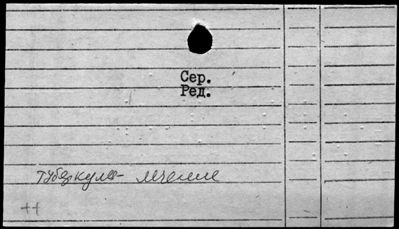 Сер.
Ред.
туберкулез- лечение
++